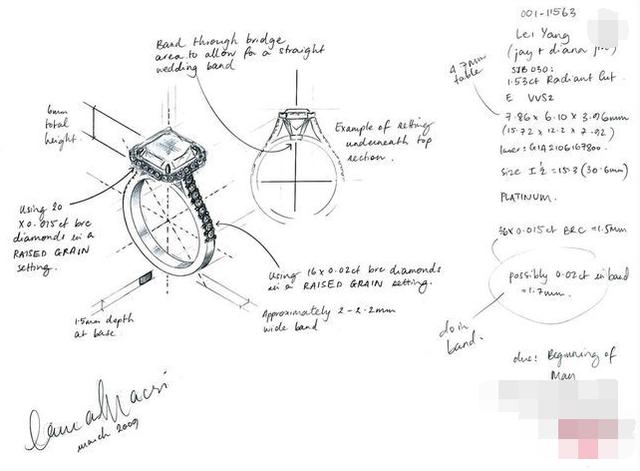 001-11563
Lei Yang
(jay + diana
STB 030:
1.53ct Radiant Cut
E VVS2
4.7mm
table
7.86 x 6.10 x 3.96mm
(15.72 x 12.2 x 7.92)
laser: GIA2106167800.
size I½ = 15.3 (30.6mm)
PLATINUM.
36x0.015ct BRC = 1.5mm
possibly 0.02ct in band
= 1.7mm.
do in
band.
due: Beginning of
May
Band through bridge
area to allow for a straight
wedding band
6mm
total
height.
Example of setting
underneath top
section.
Using 20
x 0.015ct brc
diamonds in a
RAISED GRAIN
setting.
Using 16 x 0.02ct brc diamonds
in a RAISED GRAIN setting.
Approximately 2 - 2.2mm
wide band
1.5mm depth
at base.
march 2009